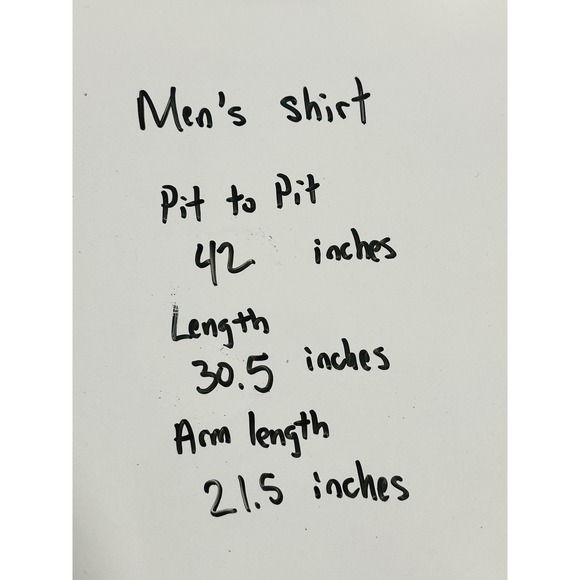 Men's shirt
Pit to Pit
42 inches
Length
30.5 inches
Arm length
21.5 inches